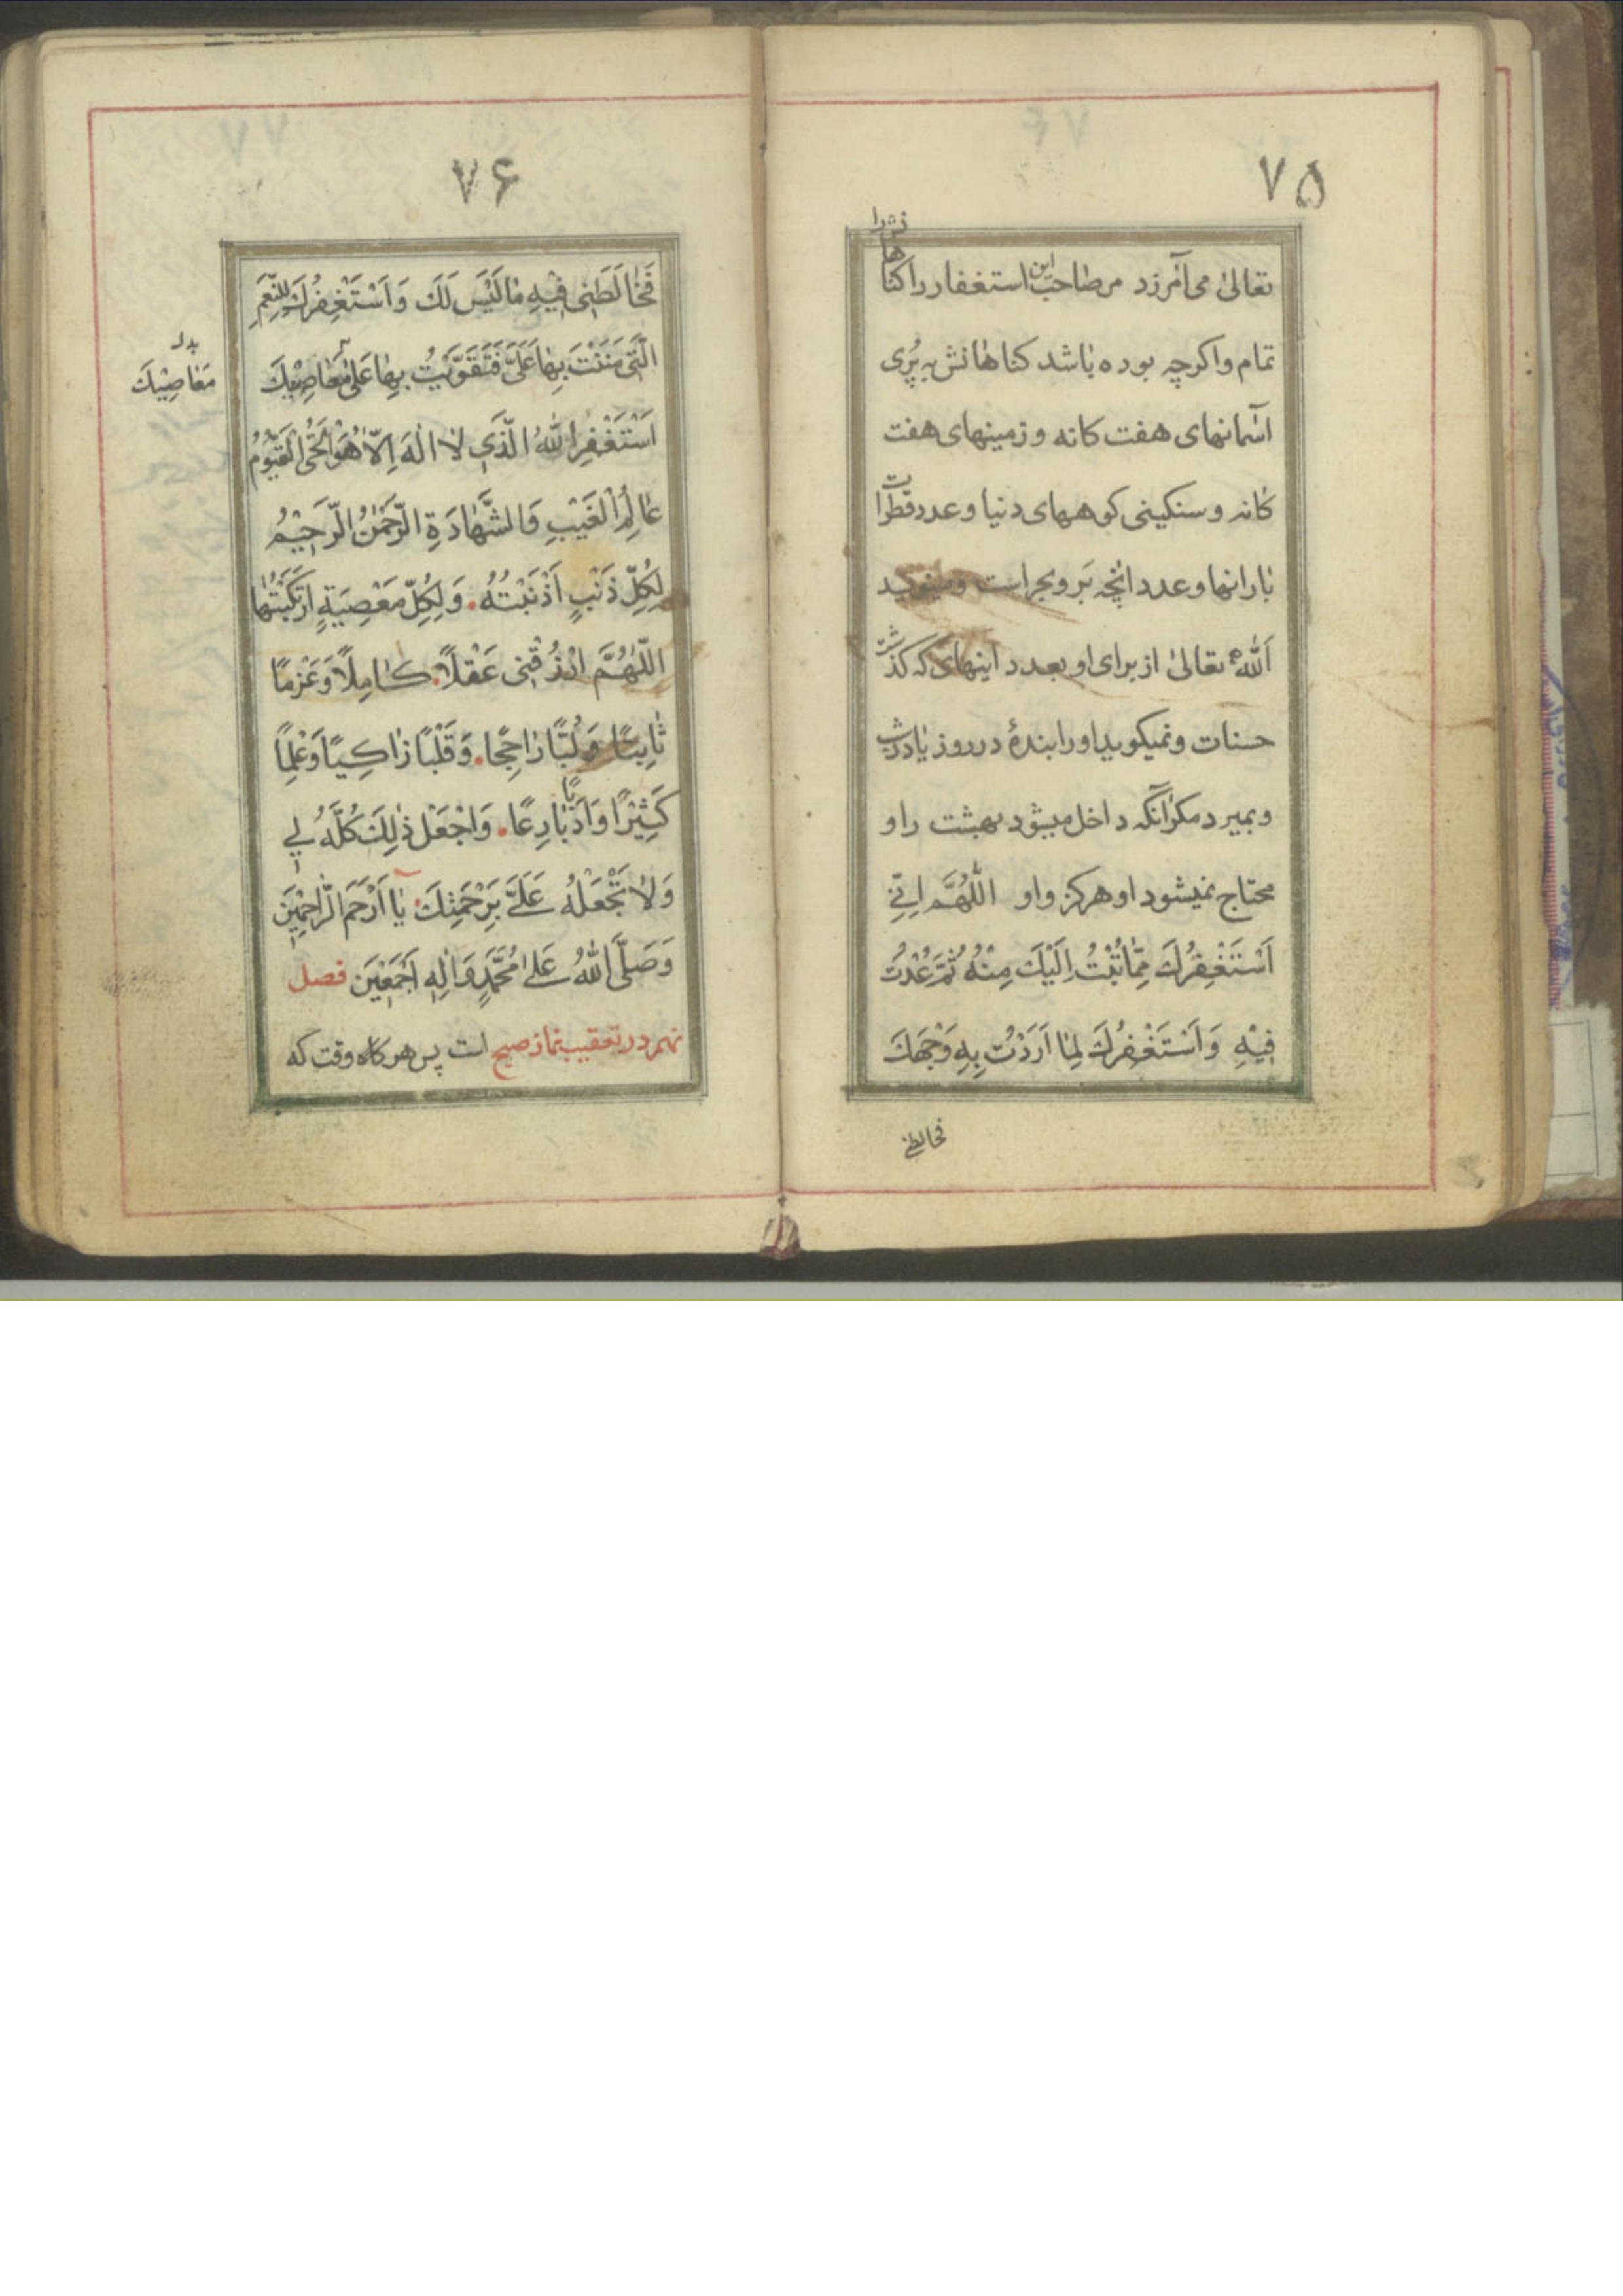 ۷۵
تعالیٰ می آمرزد مرصاحب این استغفار را کناهانش را
تمام واکرچه بوده باشد کناهانش به پُری
آسمانهای هفت کانه و زمینهای هفت
کانه و سنکینی کوههای دنیا و عدد قطرات
بارانها و عدد آنچه بَر و بحر است و مینویسد
اَللّٰه تعالیٰ از برای او بعدد اینهای که کذشت
حسنات و نمیکوید اورا بندۀ در روز یا در شب
و بمیرد مکر آنکه داخل میشود بهشت را و
محتاج نمیشود او هرکز واو اَللّٰهُمَّ اِنّی
اَسْتَغْفِرُكَ مِمّٰا تُبْتُ اِلَیْكَ مِنْهُ ثُمَّ عُدْتُ
فِیْهِ وَ اَسْتَغْفِرُكَ لِمٰا اَرَدْتُ بِهِ وَجْهَكَ
فخالطنی
۷۶
فَخٰالَطَنِی فِیْهِ مٰا لَیْسَ لَكَ وَ اَسْتَغْفِرُكَ لِلنِّعَمِ
الَّتِی مَنَنْتَ بِهٰا عَلَیَّ فَتَقَوَّیْتُ بِهٰا عَلیٰ مَعٰاصِیْكَ
بدل
مَعٰاصِیْكَ
اَسْتَغْفِرُ اللّٰهَ الَّذِی لٰا اِلٰهَ اِلّٰا هُوَ الْحَیُّ الْقَیُّوْمُ
عٰالِمُ الْغَیْبِ وَ الشَّهٰادَةِ الرَّحْمٰنُ الرَّحِیْمُ
لِكُلِّ ذَنْبٍ اَذْنَبْتُهُ. وَ لِكُلِّ مَعْصِیَةٍ ارْتَكَبْتُهٰا
اَللّٰهُمَّ ارْزُقْنِی عَقْلًا. كٰامِلًا وَ عَزْمًا
ثٰابِتًا وَ لُبًّا رٰاجِحًا. وَ قَلْبًا زٰاكِیًا وَ عِلْمًا
كَثِیْرًا وَ اَدَبًا بٰارِعًا. وَ اجْعَلْ ذٰلِكَ كُلَّهُ لِی
وَ لٰا تَجْعَلْهُ عَلَیَّ بِرَحْمَتِكَ یٰا اَرْحَمَ الرّٰاحِمِیْنَ
وَ صَلَّی اللّٰهُ عَلیٰ مُحَمَّدٍ وَ اٰلِهِ اَجْمَعِیْنَ فصل
نهم در تعقیب نماز صبح است پس هرکاه وقت که